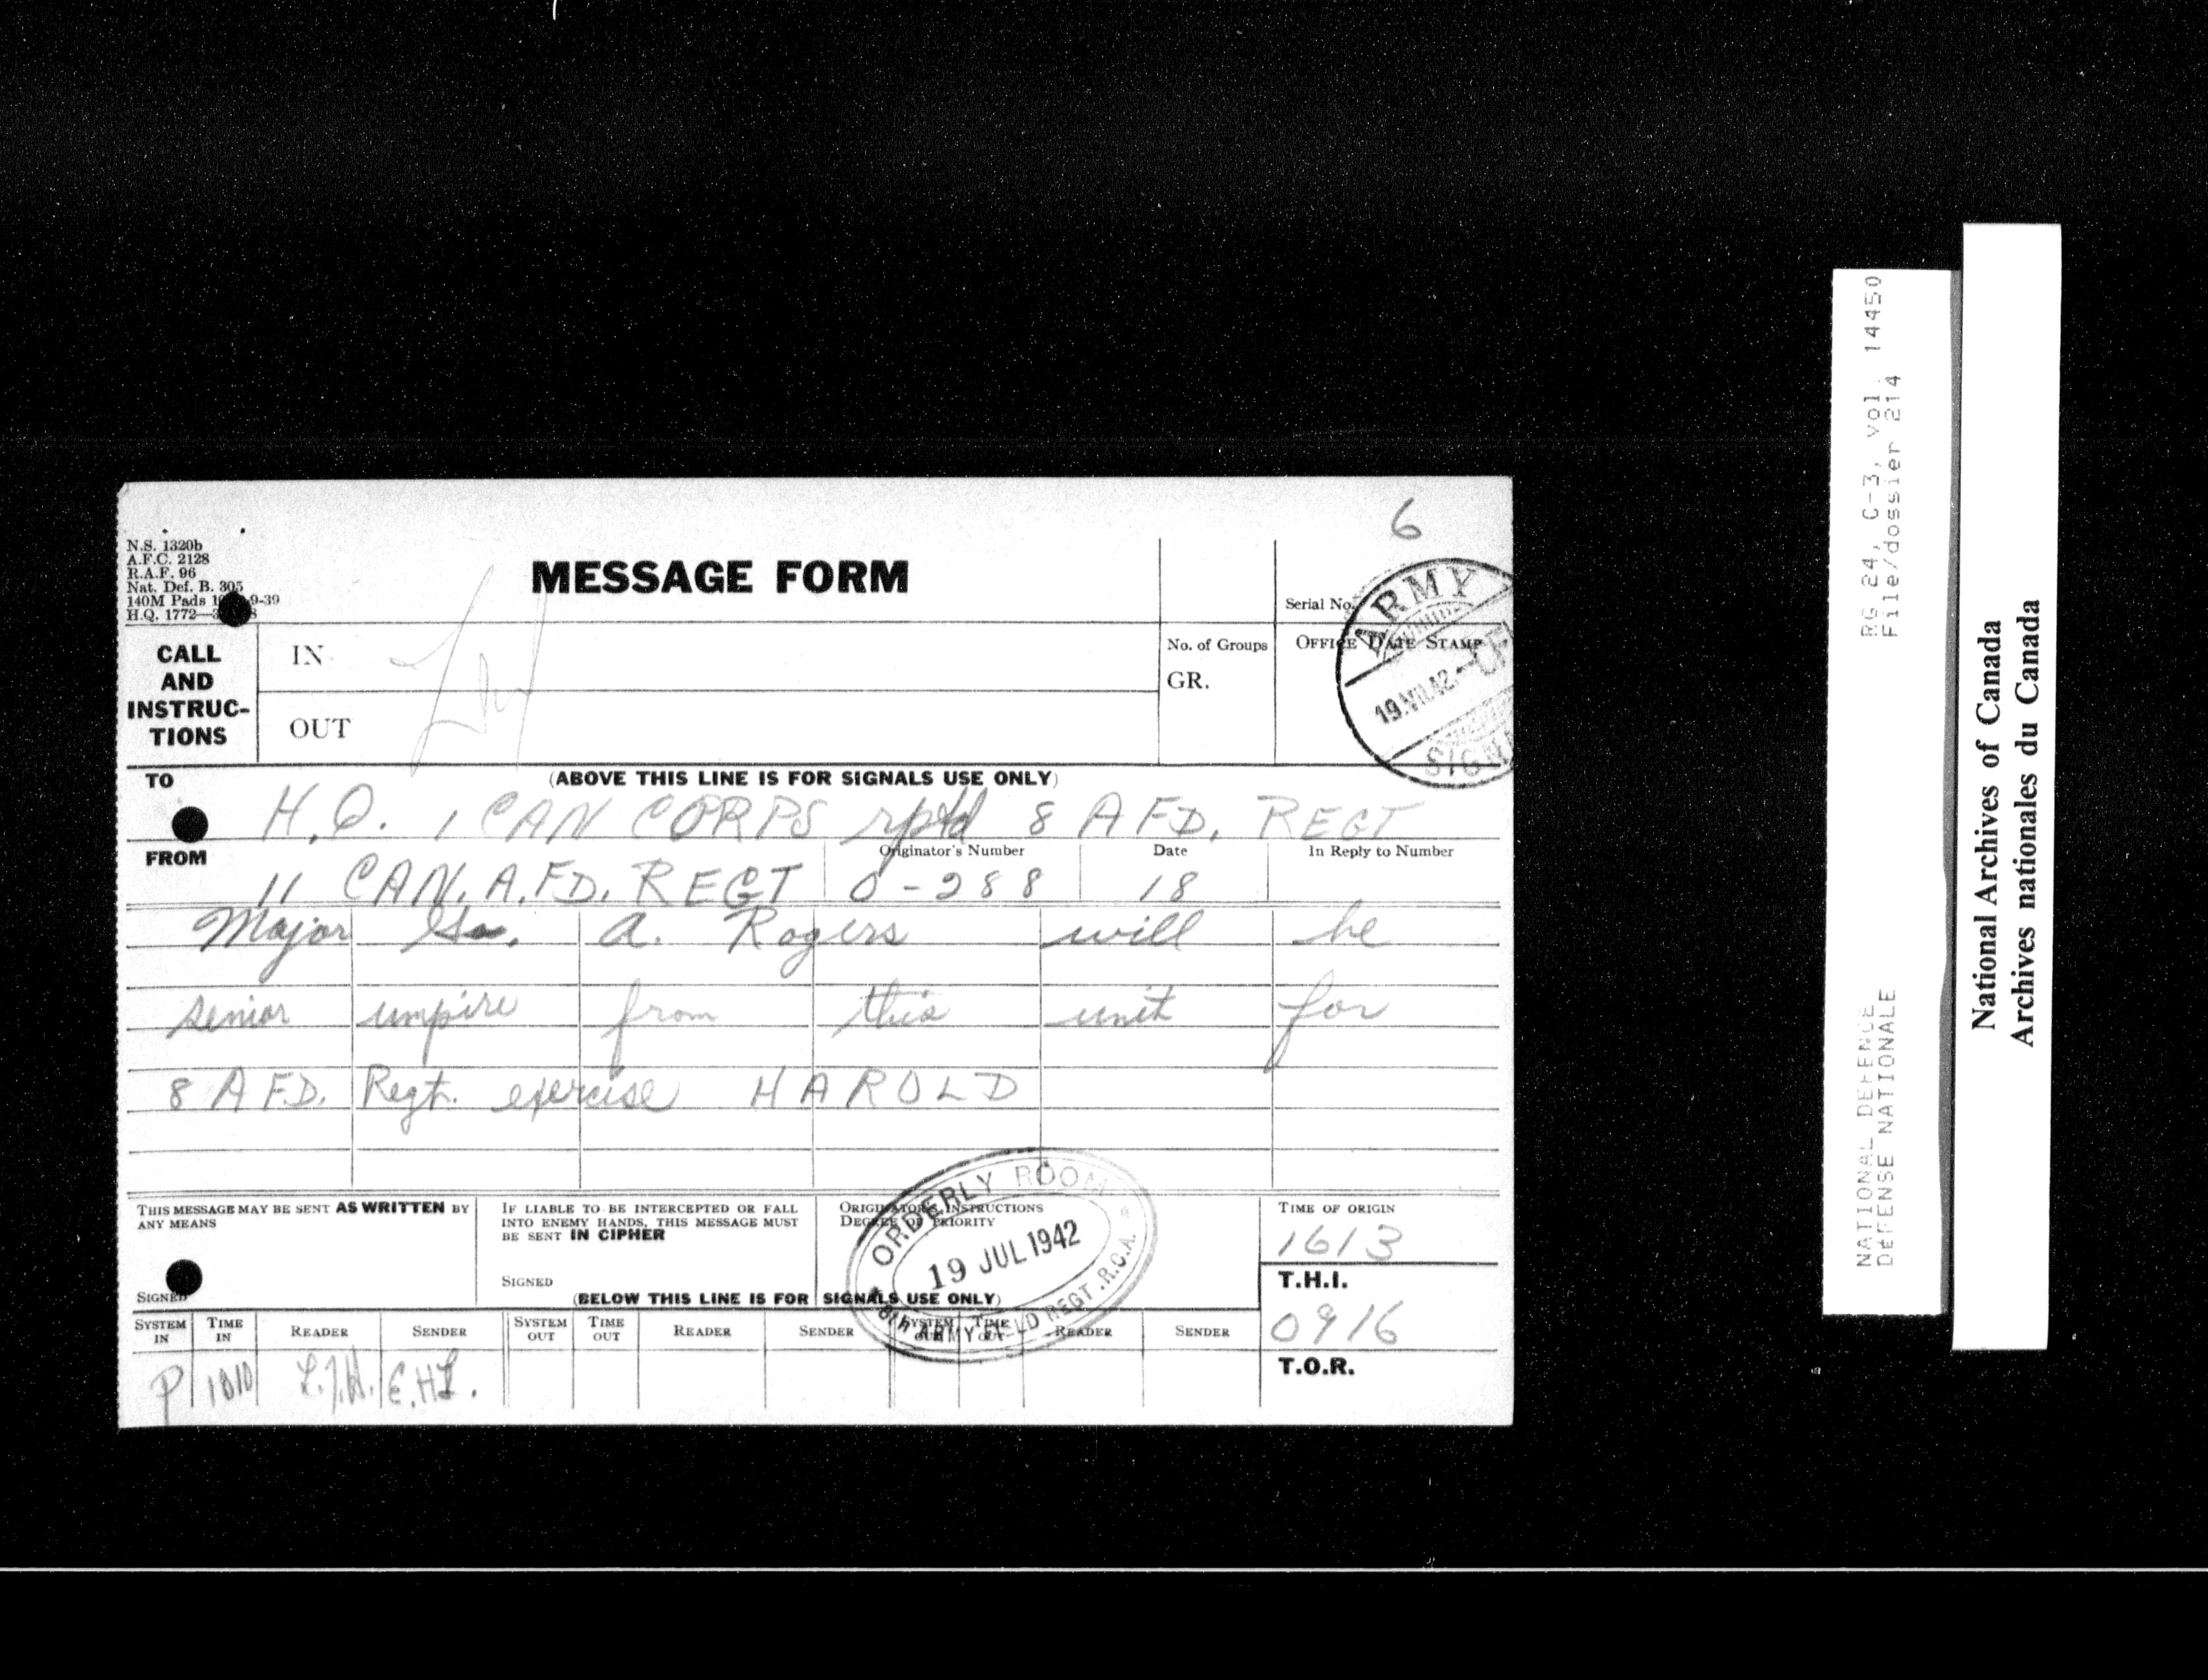 6
N.S. 1320b
A.F.C. 2128
R.A.F. 96
Nat. Def. B. 305
140M Pads 9-39
H.Q. 1772
MESSAGE FORM
Serial No.
CALL AND INSTRUC-TIONS
IN
OUT
No. of Groups
GR.
OFFICE DATE STAMP
ARMY
19.VII.42
SIGN
TO
(ABOVE THIS LINE IS FOR SIGNALS USE ONLY)
H.Q. 1 CAN CORPS rptd 8 A FD. REGT
FROM
Originator's Number
Date
In Reply to Number
11 CAN. A. FD. REGT O-288 18
Major A. Rogers will be
senior umpire from this unit for
8 A F.D. Regt. exercise HAROLD
THIS MESSAGE MAY BE SENT AS WRITTEN BY ANY MEANS
SIGNED
IF LIABLE TO BE INTERCEPTED OR FALL INTO ENEMY HANDS, THIS MESSAGE MUST BE SENT IN CIPHER
SIGNED
ORIGINATOR'S INSTRUCTIONS
DEGREE OF PRIORITY
ORDERLY ROOM
19 JUL 1942
8th ARMY FIELD REGT. R.C.A.
TIME OF ORIGIN
1613
T.H.I.
0916
T.O.R.
(BELOW THIS LINE IS FOR SIGNALS USE ONLY)
SYSTEM IN TIME IN READER SENDER SYSTEM OUT TIME OUT READER SENDER SYSTEM OUT TIME OUT READER SENDER
P 1010 E.H.L.
RG 24, C-3, vol. 14450
File/dossier 214
NATIONAL DEFENCE
DEFENSE NATIONALE
National Archives of Canada
Archives nationales du Canada